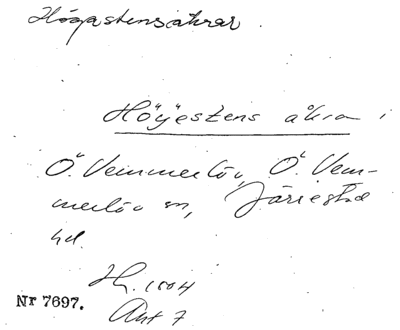 Högastensåkrar.
Höÿestens åkra i
Ö. Vemmerlöv, Ö. Vem-
merlöv sn, Järrestad
hd.
1504
Nr 7697.
Ant 7